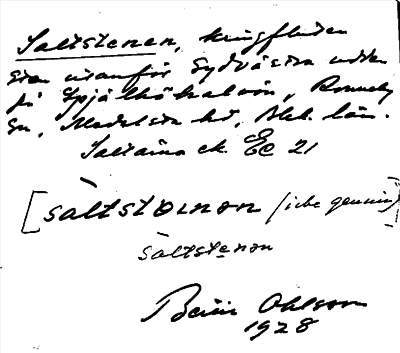 Saltstenen, kringfluten
sten utanför sydvästra udden
på Spjälkö halvön, Ronneby
sn, Medelsta hd, Blek. län.
ek. Ec 21
[sàltstenon (icke genuin)]
sàltstenon
Ohlsson
1928